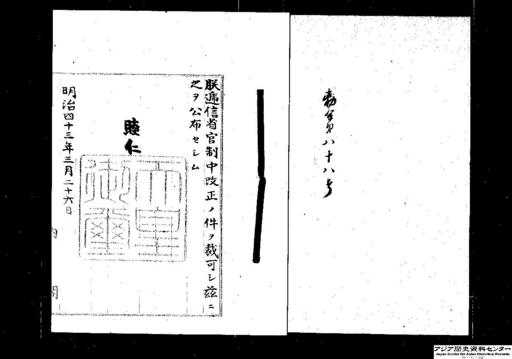 勅令第八十八号
朕逓信省官制中改正ノ件ヲ裁可シ茲ニ
之ヲ公布セシム
睦仁
天皇御璽
明治四十三年三月二十六日
内閣
アジア歴史資料センター
Japan Center for Asian Historical Records